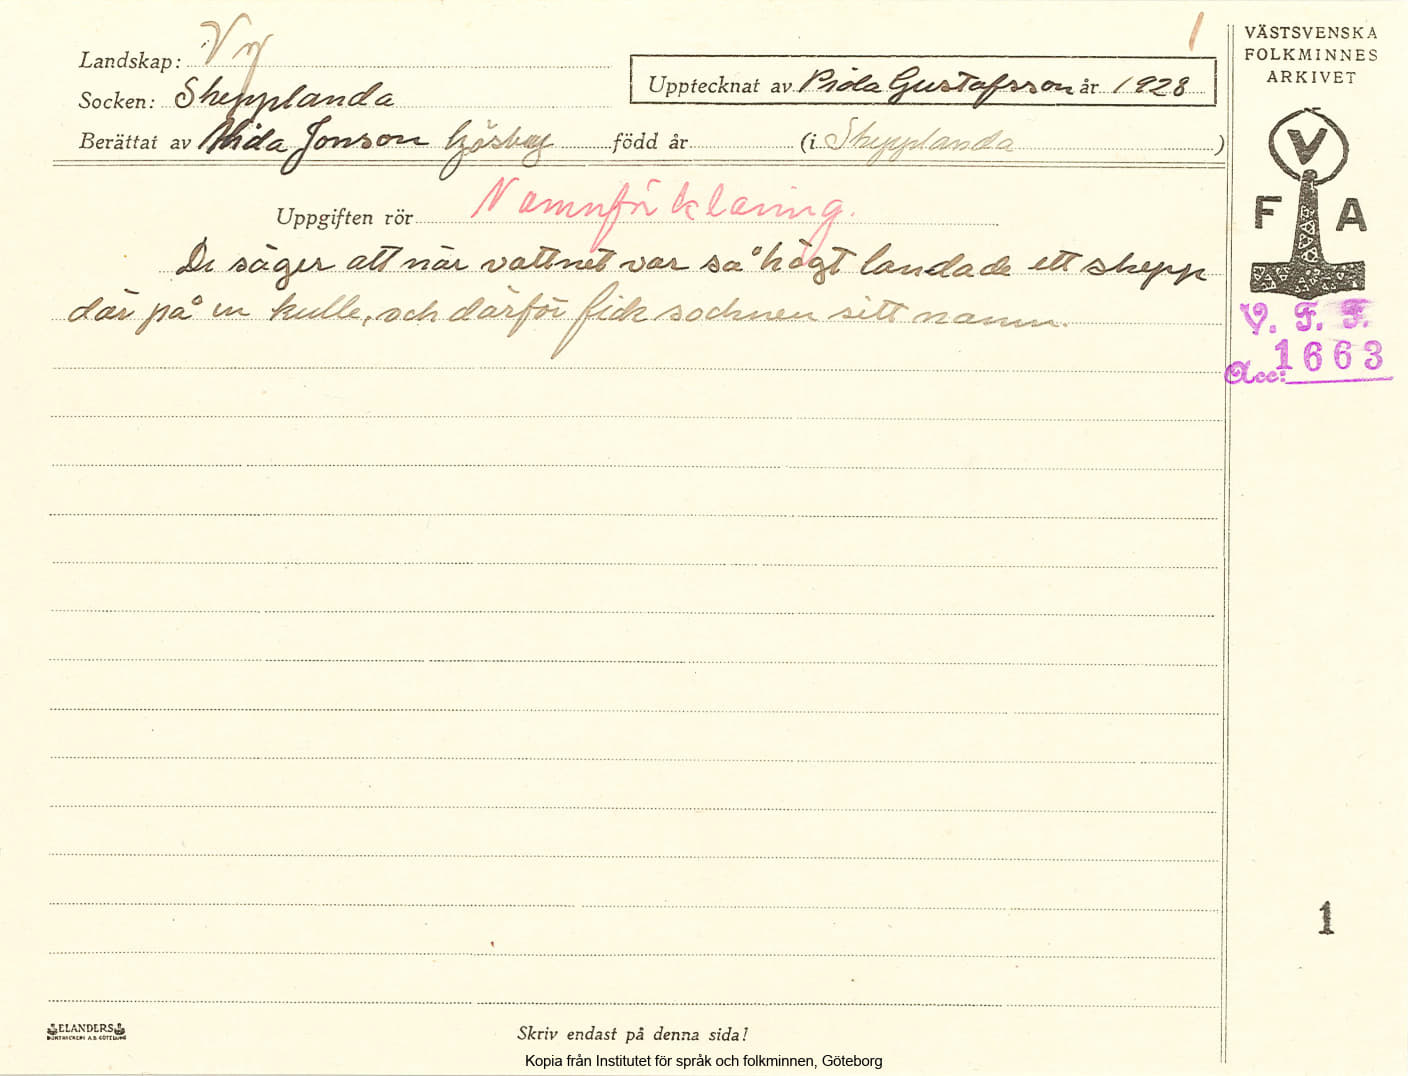 1
Landskap: Vg
Socken: Skepplanda
Upptecknat av Frida Gustafsson år 1928
Berättat av Alida Jonson född år (i Skepplanda)
Uppgiften rör Namnförklaring.
De säger att när vattnet var så högt landade ett skepp
där på en kulle, och därför fick socknen sitt namn.
VÄSTSVENSKA
FOLKMINNES
ARKIVET
V
F A
V. F. F.
Acc: 1663
1
ELANDERS
BOKTRYCKERI A.B. GÖTEBORG
Skriv endast på denna sida!
Kopia från Institutet för språk och folkminnen, Göteborg